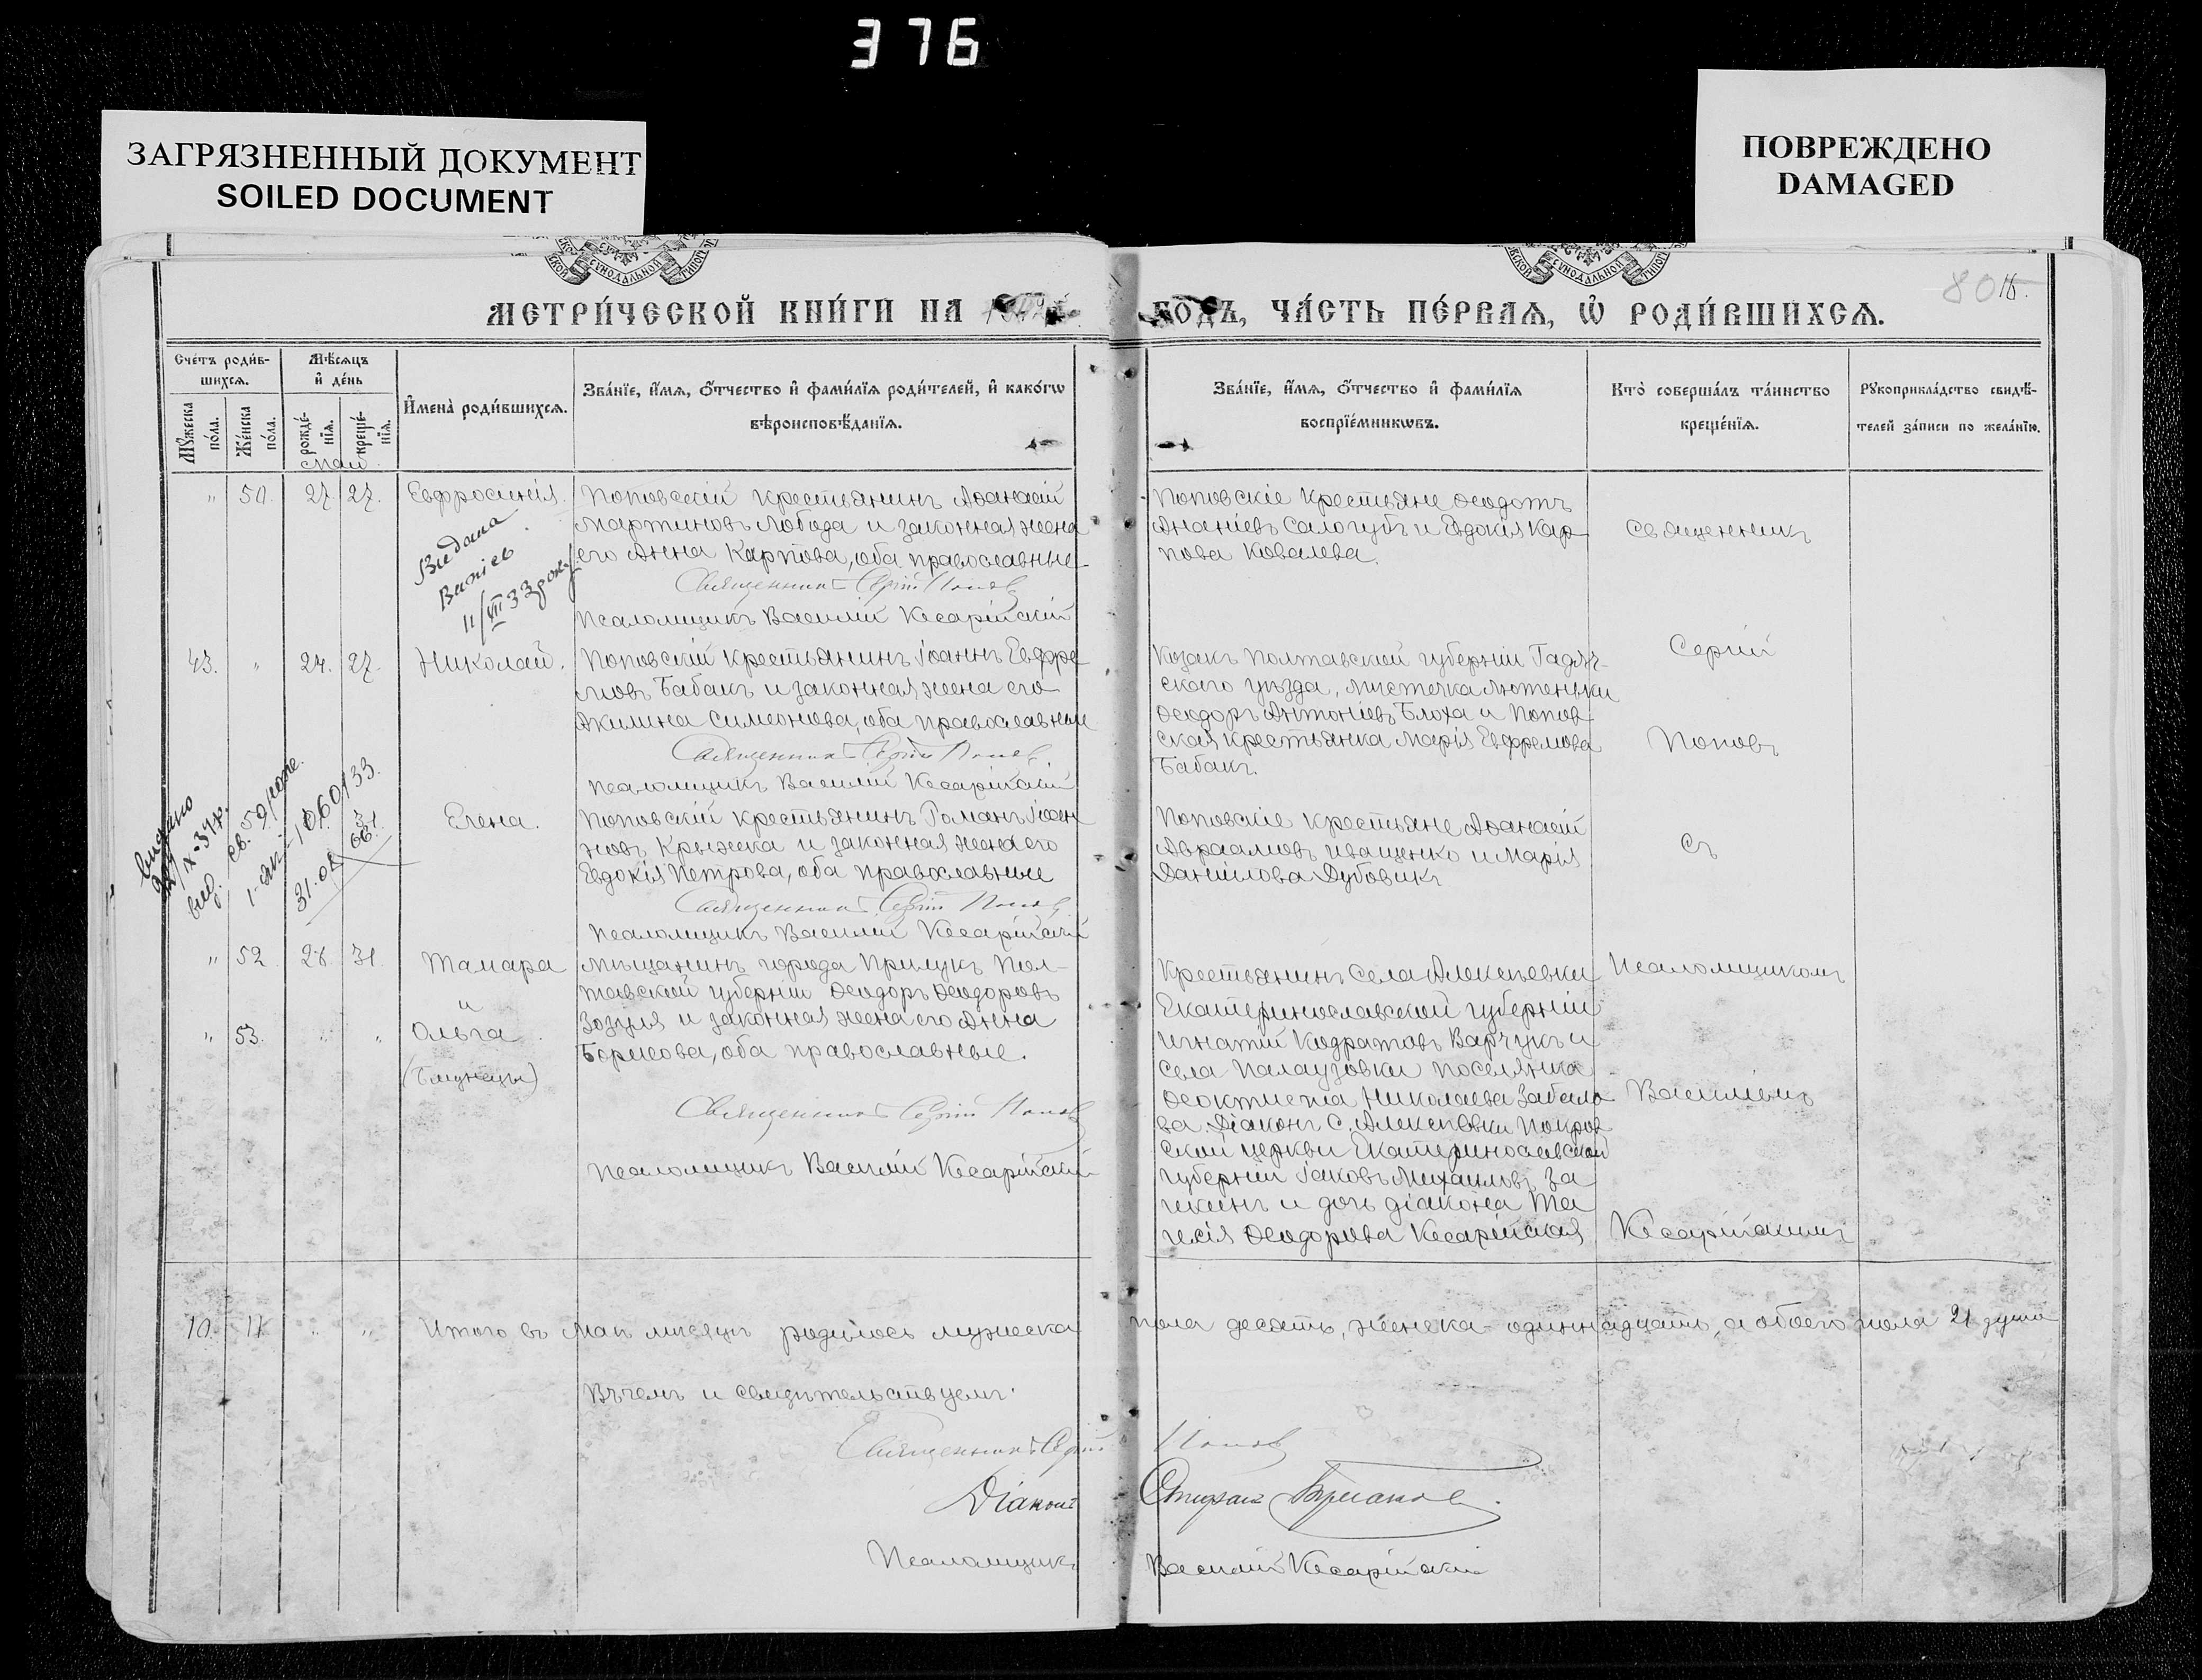 376
ЗАГРЯЗНЕННЫЙ ДОКУМЕНТ
SOILED DOCUMENT
ПОВРЕЖДЕНО
DAMAGED
МЕТРИ́ЧЕСКОЙ КНИ́ГИ НА
ГО́ДЪ, ЧА́СТЬ ПЕ́РВАѦ, Ѡ҆ РОДИ́ВШИХСѦ.
80
Сче́тъ роди́в-
шихсѧ.
Мѣ́сѧцъ
и҆ де́нь
Мꙋ́жеска
по́ла.
Же́нска
по́ла.
рожде́-
нїѧ.
креще́-
нїѧ.
И҆мена̀ роди́вшихсѧ.
Зва́нїе, и҆́мѧ, ѻ҆́тчество и҆ фами́лїѧ роди́телей, и҆ како́гѡ
вѣроисповѣ́данїѧ.
Зва́нїе, и҆́мѧ, ѻ҆́тчество и҆ фами́лїѧ
воспрїе́мникѡвъ.
Кто̀ соверша́лъ та́инство
креще́нїѧ.
Рꙋкоприкла́дство свидѣ́-
телей за́писи по жела́нїю.
Май
" 50. 27. 27. Евфросинія.
Поповскій крестьянинъ Аѳанасій
Мартиновъ Лобода и законная жена
его Анна Карпова, оба православные
Священникъ Сергій Поповъ
Псаломщикъ Василій Кесарійскій
Поповскіе крестьяне Ѳеодотъ
Ананіевъ Салогубъ и Евдокія Кар-
пова Ковалева.
Священникъ
Видана
43. " 24. 27. Николай.
Поповскій крестьянинъ Іоаннъ Евфре-
мовъ Бабакъ и законная жена его
Акилина Симеонова, оба православные
Священникъ Сергій Поповъ
Псаломщикъ Василій Кесарійскій
Козакъ Полтавской губерніи Гадяч-
скаго уѣзда, мѣстечка Лютеньки
Ѳеодоръ Антоніевъ Блоха и Попов-
ская крестьянка Марія Евфремова
Бабакъ.
Сергій
Поповъ
Елена.
Поповскій крестьянинъ Романъ Іоан-
новъ Крыжка и законная жена его
Евдокія Петрова, оба православные
Священникъ Сергій Поповъ
Псаломщикъ Василій Кесарійскій
Поповскіе крестьяне Аѳанасій
Авраамовъ Иващенко и Марія
Даніилова Дубовикъ
Съ
" 52 28. 31. Тамара
и
" 53. " " Ольга
(Близнецы)
Мѣщанинъ города Прилукъ Пол-
тавской губерніи Ѳеодоръ Ѳеодоровъ
Зозуля и законная жена его Анна
Борисова, оба православные.
Священникъ Сергій Поповъ
Псаломщикъ Василій Кесарійскій
Крестьянинъ села Алексѣевки
Екатеринославской губерніи
Игнатій Кодратовъ Варчукъ и
села Палаузовки поселянка
Ѳеоктиста Николаева Забало-
ва. Діаконъ с. Алексѣевки Покров-
ской церкви Екатеринославской
губерніи Іаковъ Михаиловъ За-
икинъ и дочь діакона Та-
исія Ѳеодорова Кесарійская
Псаломщикомъ
Василіемъ
Кесарійскимъ
10. 11. " " Итого въ Маѣ мѣсяцѣ родилось мужеска
пола десять, женска одиннадцать, а обоего пола 21 душа
Въ чемъ и свидѣтельствуемъ:
Священникъ Сергій Поповъ
Діаконъ
Псаломщикъ Василій Кесарійскій